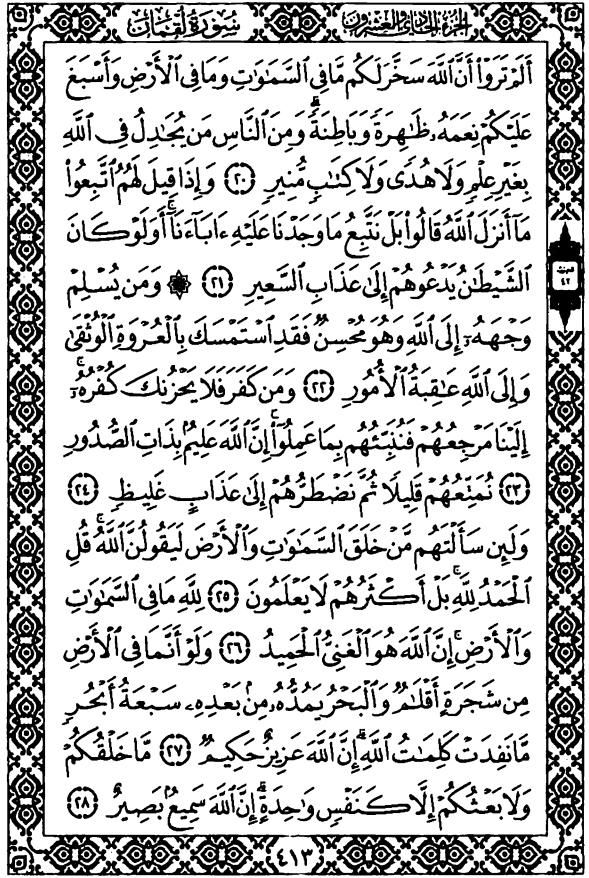 سُورَةُ لُقْمَان
الجُزْءُ الحَادِي وَالعِشْرُون
أَلَمْ تَرَوْا۟ أَنَّ ٱللَّهَ سَخَّرَ لَكُم مَّا فِى ٱلسَّمَٰوَٰتِ وَمَا فِى ٱلْأَرْضِ وَأَسْبَغَ
عَلَيْكُمْ نِعَمَهُۥ ظَٰهِرَةً وَبَاطِنَةً ۗ وَمِنَ ٱلنَّاسِ مَن يُجَٰدِلُ فِى ٱللَّهِ
بِغَيْرِ عِلْمٍ وَلَا هُدًى وَلَا كِتَٰبٍ مُّنِيرٍ ﴿٢٠﴾ وَإِذَا قِيلَ لَهُمُ ٱتَّبِعُوا۟
مَآ أَنزَلَ ٱللَّهُ قَالُوا۟ بَلْ نَتَّبِعُ مَا وَجَدْنَا عَلَيْهِ ءَابَآءَنَآ ۚ أَوَلَوْ كَانَ
ٱلشَّيْطَٰنُ يَدْعُوهُمْ إِلَىٰ عَذَابِ ٱلسَّعِيرِ ﴿٢١﴾ ۞ وَمَن يُسْلِمْ
وَجْهَهُۥٓ إِلَى ٱللَّهِ وَهُوَ مُحْسِنٌ فَقَدِ ٱسْتَمْسَكَ بِٱلْعُرْوَةِ ٱلْوُثْقَىٰ ۗ
وَإِلَى ٱللَّهِ عَٰقِبَةُ ٱلْأُمُورِ ﴿٢٢﴾ وَمَن كَفَرَ فَلَا يَحْزُنكَ كُفْرُهُۥٓ ۚ
إِلَيْنَا مَرْجِعُهُمْ فَنُنَبِّئُهُم بِمَا عَمِلُوٓا۟ ۚ إِنَّ ٱللَّهَ عَلِيمٌۢ بِذَاتِ ٱلصُّدُورِ
﴿٢٣﴾ نُمَتِّعُهُمْ قَلِيلًا ثُمَّ نَضْطَرُّهُمْ إِلَىٰ عَذَابٍ غَلِيظٍ ﴿٢٤﴾
وَلَئِن سَأَلْتَهُم مَّنْ خَلَقَ ٱلسَّمَٰوَٰتِ وَٱلْأَرْضَ لَيَقُولُنَّ ٱللَّهُ ۚ قُلِ
ٱلْحَمْدُ لِلَّهِ ۚ بَلْ أَكْثَرُهُمْ لَا يَعْلَمُونَ ﴿٢٥﴾ لِلَّهِ مَا فِى ٱلسَّمَٰوَٰتِ
وَٱلْأَرْضِ ۚ إِنَّ ٱللَّهَ هُوَ ٱلْغَنِىُّ ٱلْحَمِيدُ ﴿٢٦﴾ وَلَوْ أَنَّمَا فِى ٱلْأَرْضِ
مِن شَجَرَةٍ أَقْلَٰمٌ وَٱلْبَحْرُ يَمُدُّهُۥ مِنۢ بَعْدِهِۦ سَبْعَةُ أَبْحُرٍ
مَّا نَفِدَتْ كَلِمَٰتُ ٱللَّهِ ۗ إِنَّ ٱللَّهَ عَزِيزٌ حَكِيمٌ ﴿٢٧﴾ مَّا خَلْقُكُمْ
وَلَا بَعْثُكُمْ إِلَّا كَنَفْسٍ وَٰحِدَةٍ ۗ إِنَّ ٱللَّهَ سَمِيعٌۢ بَصِيرٌ ﴿٢٨﴾
٤٢
٤١٣